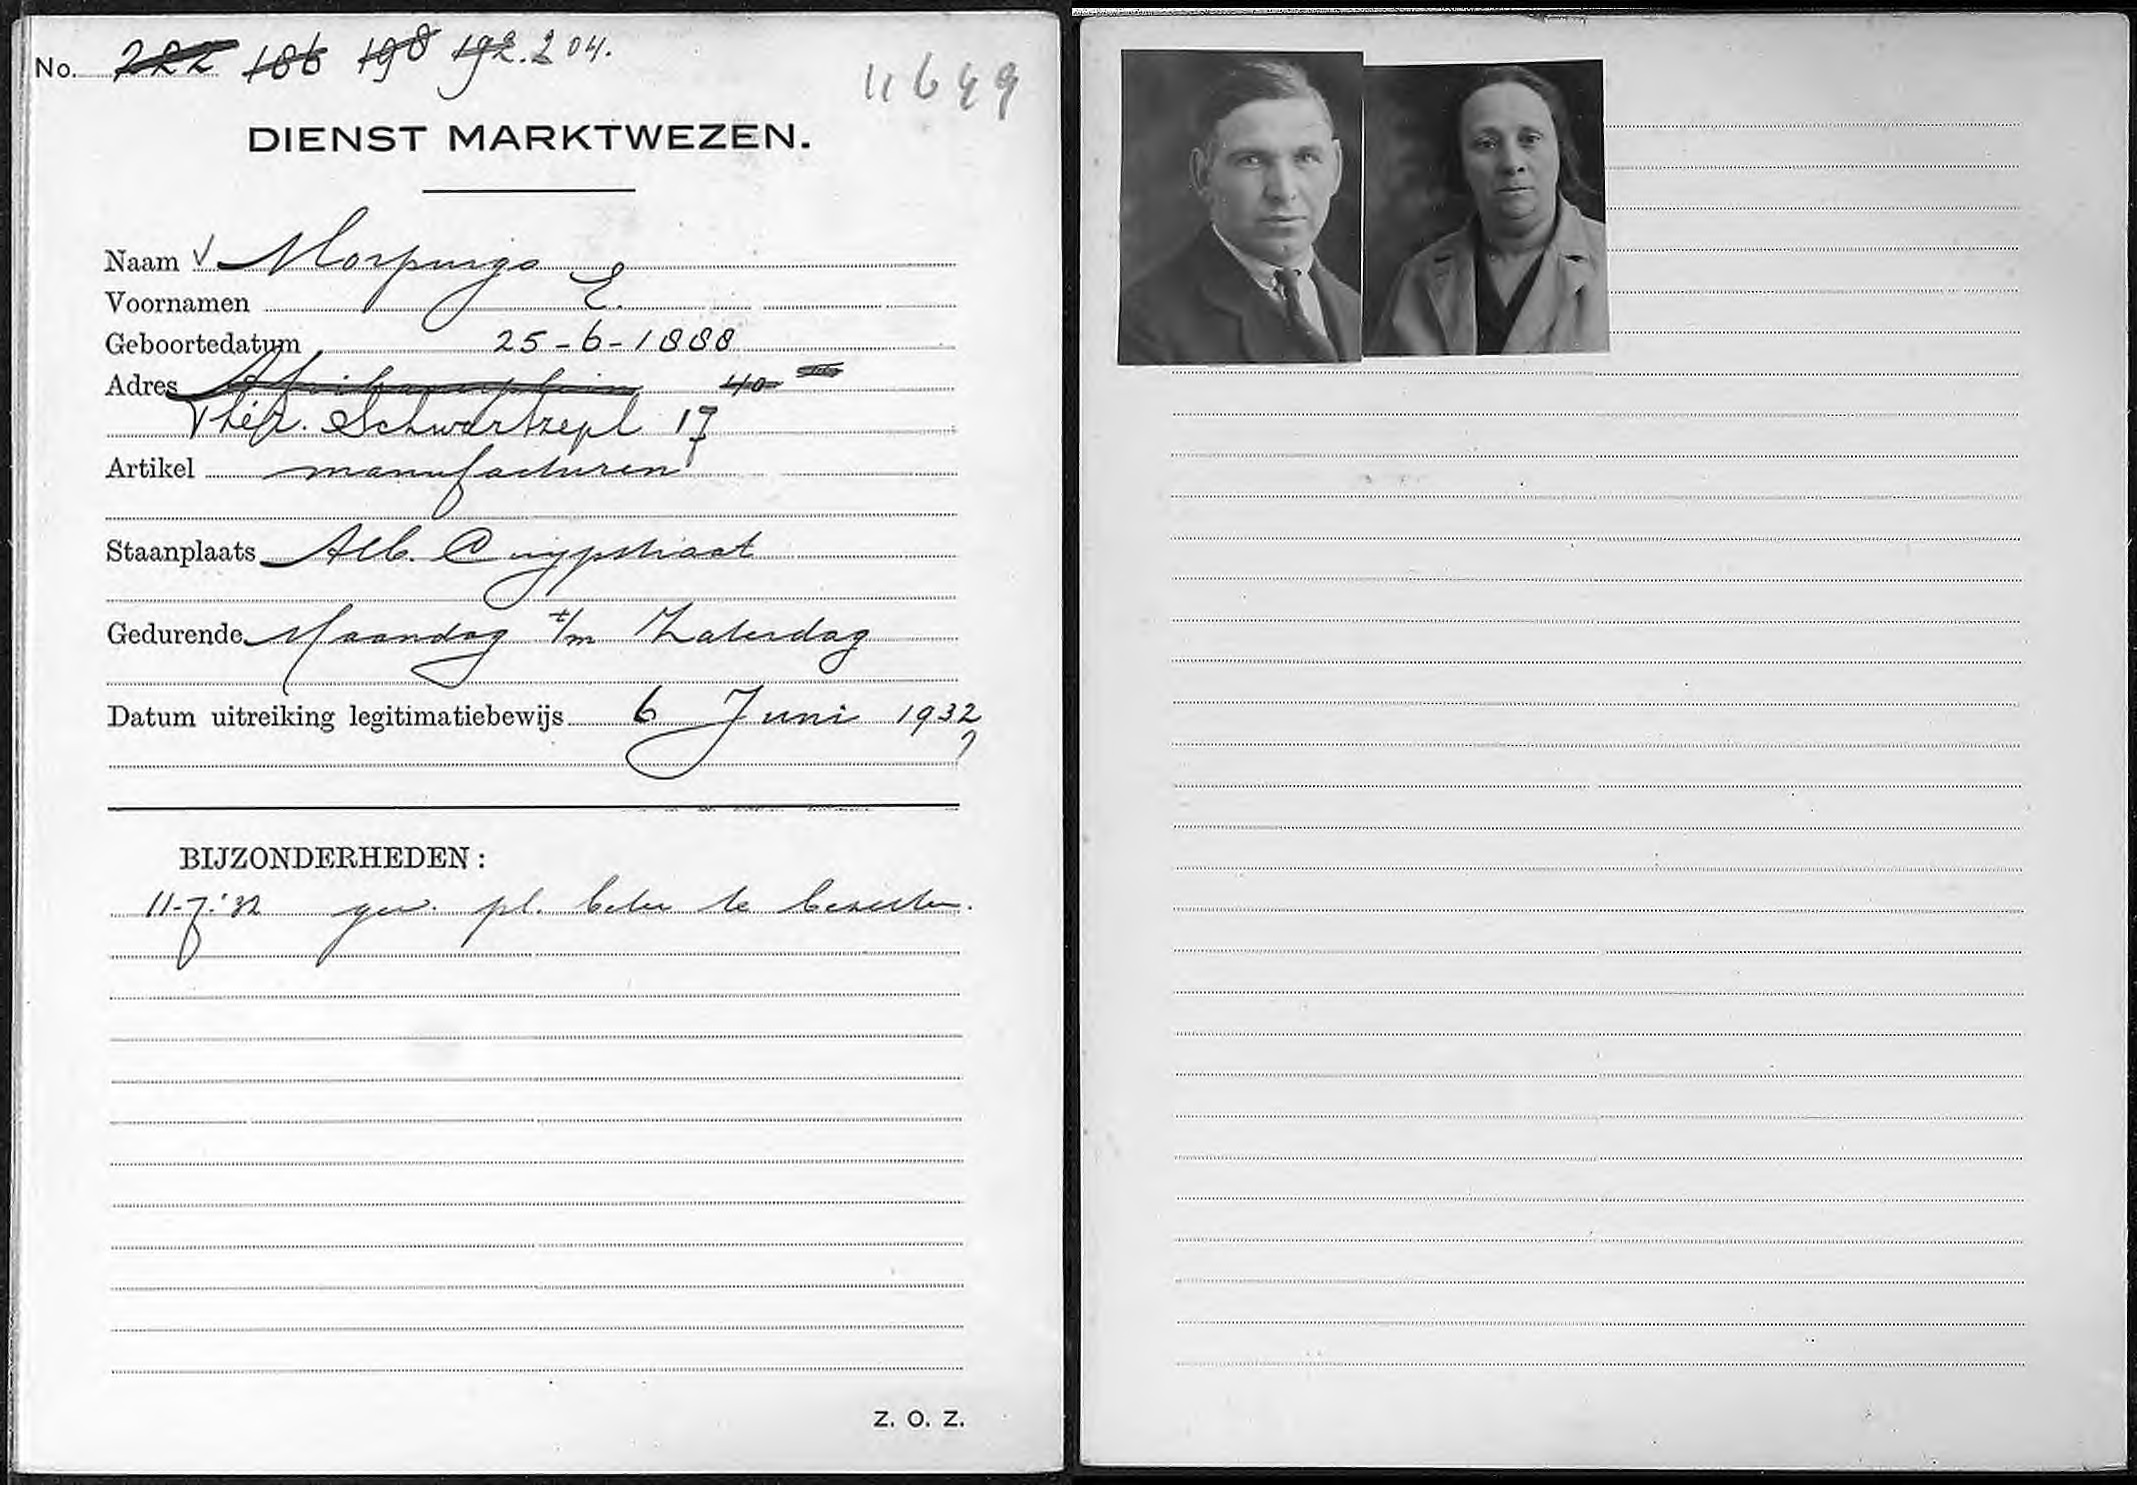 No. 222 186 198 192. 204.
11699
DIENST MARKTWEZEN.
Naam V Morpurgo
Voornamen E.
Geboortedatum 25-6-1888
Adres Afrikanerplein 40 III
Thér. Schwartzepl 17
Artikel manufacturen
Staanplaats Alb. Cuypstraat
Gedurende Maandag t/m Zaterdag
Datum uitreiking legitimatiebewijs 6 Juni 1932
BIJZONDERHEDEN:
11-7-'32 gew. pl. beter te bezetten.
Z. O. Z.